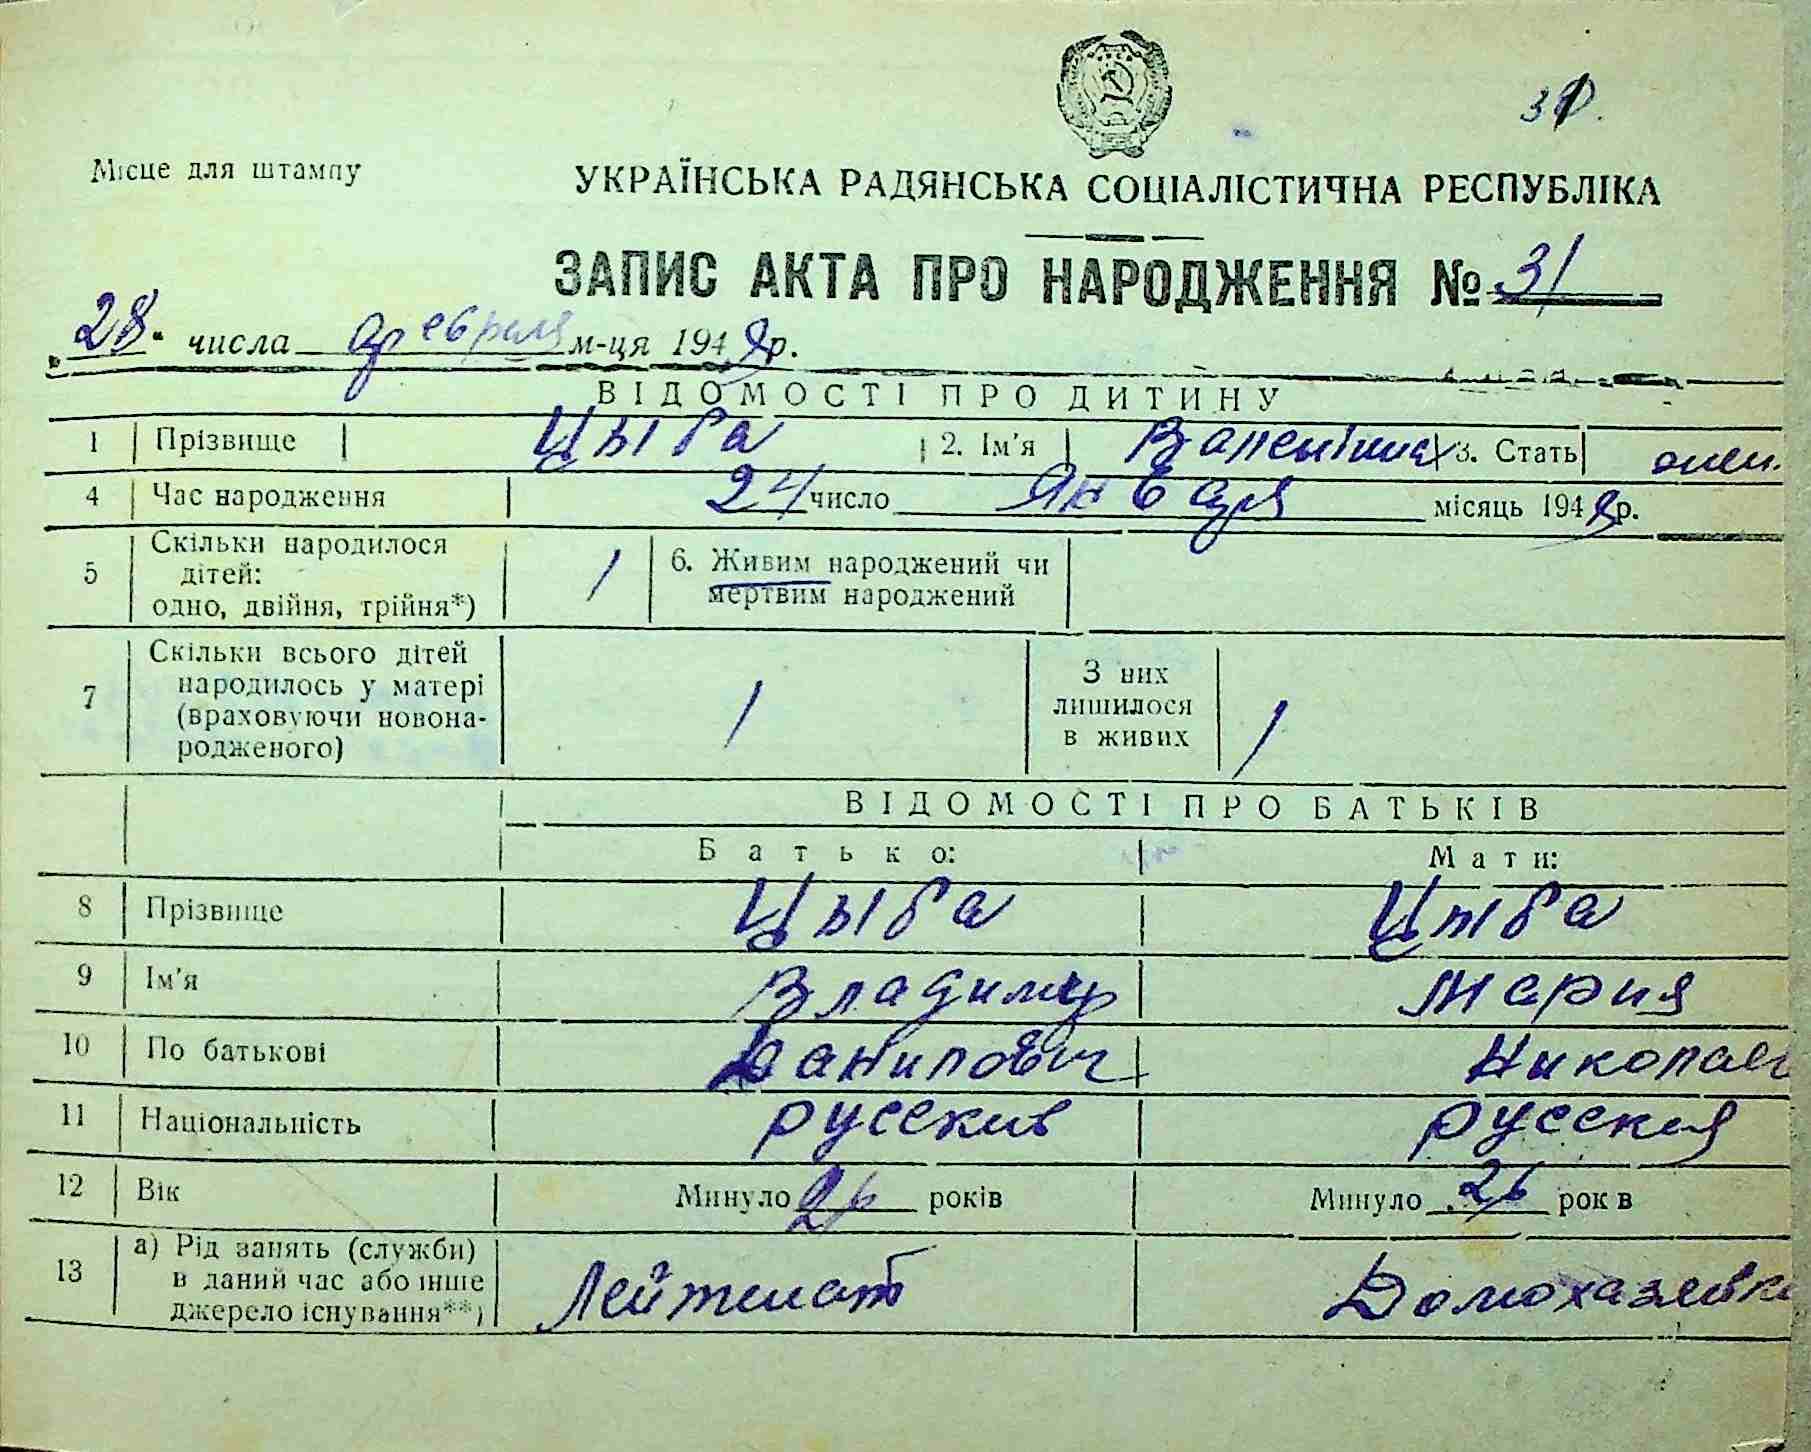 31.
Місце для штампу
УКРАЇНСЬКА РАДЯНСЬКА СОЦІАЛІСТИЧНА РЕСПУБЛІКА
ЗАПИС АКТА ПРО НАРОДЖЕННЯ № 31
"28" числа февраля м-ця 1948 р.
ВІДОМОСТІ ПРО ДИТИНУ
1 Прізвище Цыба 2. Ім'я Валентина 3. Стать
4 Час народження 24 число Января місяць 1948 р.
5 Скільки народилося дітей: одно, двійня, трійня*) 1 6. Живим народжений чи мертвим народжений
7 Скільки всього дітей народилось у матері (враховуючи новонародженого) 1 З них лишилося в живих 1
ВІДОМОСТІ ПРО БАТЬКІВ
Батько: Мати:
8 Прізвище Цыба Цыба
9 Ім'я Владимир Мария
10 По батькові Данилович Николаев
11 Національність русский русская
12 Вік Минуло 26 років Минуло 26 років
13 а) Рід занять (служби) в даний час або інше джерело існування**) Лейтенат Домохазяйка